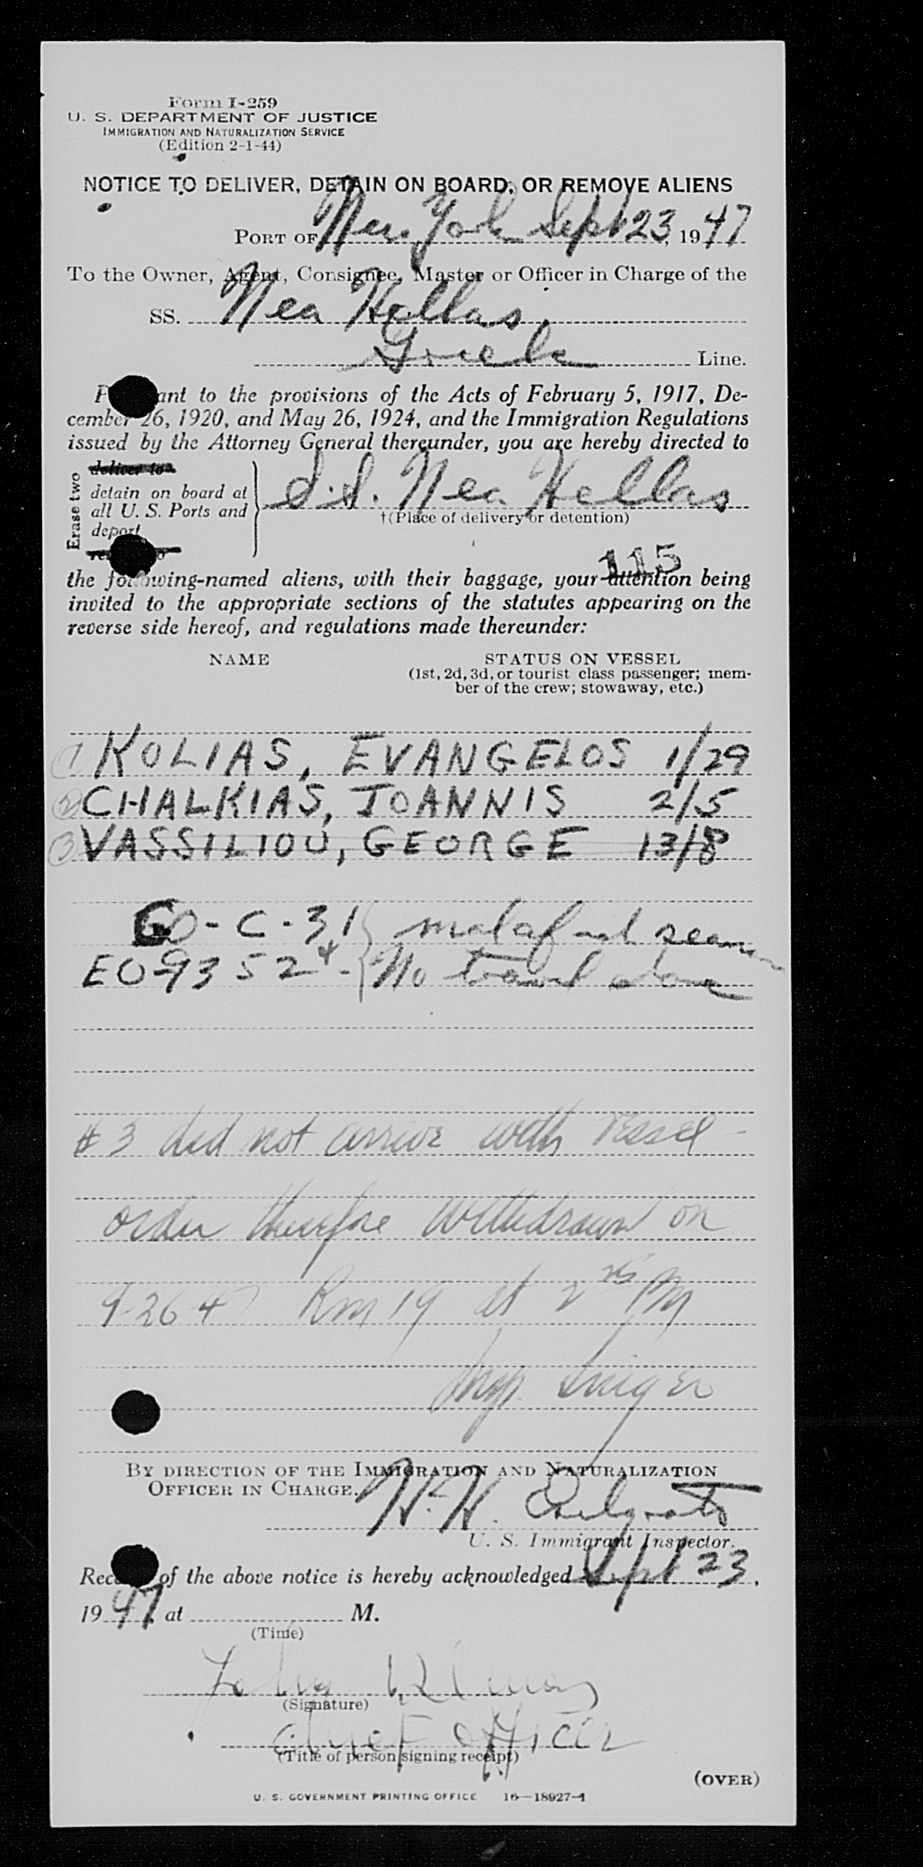 Form I-259
U. S. DEPARTMENT OF JUSTICE
IMMIGRATION AND NATURALIZATION SERVICE
(Edition 2-1-44)
NOTICE TO DELIVER, DETAIN ON BOARD, OR REMOVE ALIENS
PORT OF New York Sept 23, 1947
To the Owner, Agent, Consignee, Master or Officer in Charge of the
SS. Nea Hellas
Greek Line.
Pursuant to the provisions of the Acts of February 5, 1917, De-
cember 26, 1920, and May 26, 1924, and the Immigration Regulations
issued by the Attorney General thereunder, you are hereby directed to
Erase two
deliver to
detain on board at
all U. S. Ports and
deport
S.S. Nea Hellas
†(Place of delivery or detention)
115
the following-named aliens, with their baggage, your attention being
invited to the appropriate sections of the statutes appearing on the
reverse side hereof, and regulations made thereunder:
NAME STATUS ON VESSEL
(1st, 2d, 3d, or tourist class passenger; mem-
ber of the crew; stowaway, etc.)
1 KOLIAS, EVANGELOS 1/29
2 CHALKIAS, IOANNIS 2/5
3 VASSILIOU, GEORGE 13/8
GO-C-31 malafied seaman
EO-9352 No travel
#3 did not arrive with vessel -
order therefore withdrawn on
9-26-47 Rm 19 at 2 PM
Insp.
BY DIRECTION OF THE IMMIGRATION AND NATURALIZATION
OFFICER IN CHARGE.
H. H.
U. S. Immigrant Inspector.
Receipt of the above notice is hereby acknowledged Sept 23,
1947, at M.
(Time)
(Signature)
Chief Officer
(Title of person signing receipt)
(OVER)
U. S. GOVERNMENT PRINTING OFFICE 16—18927-1